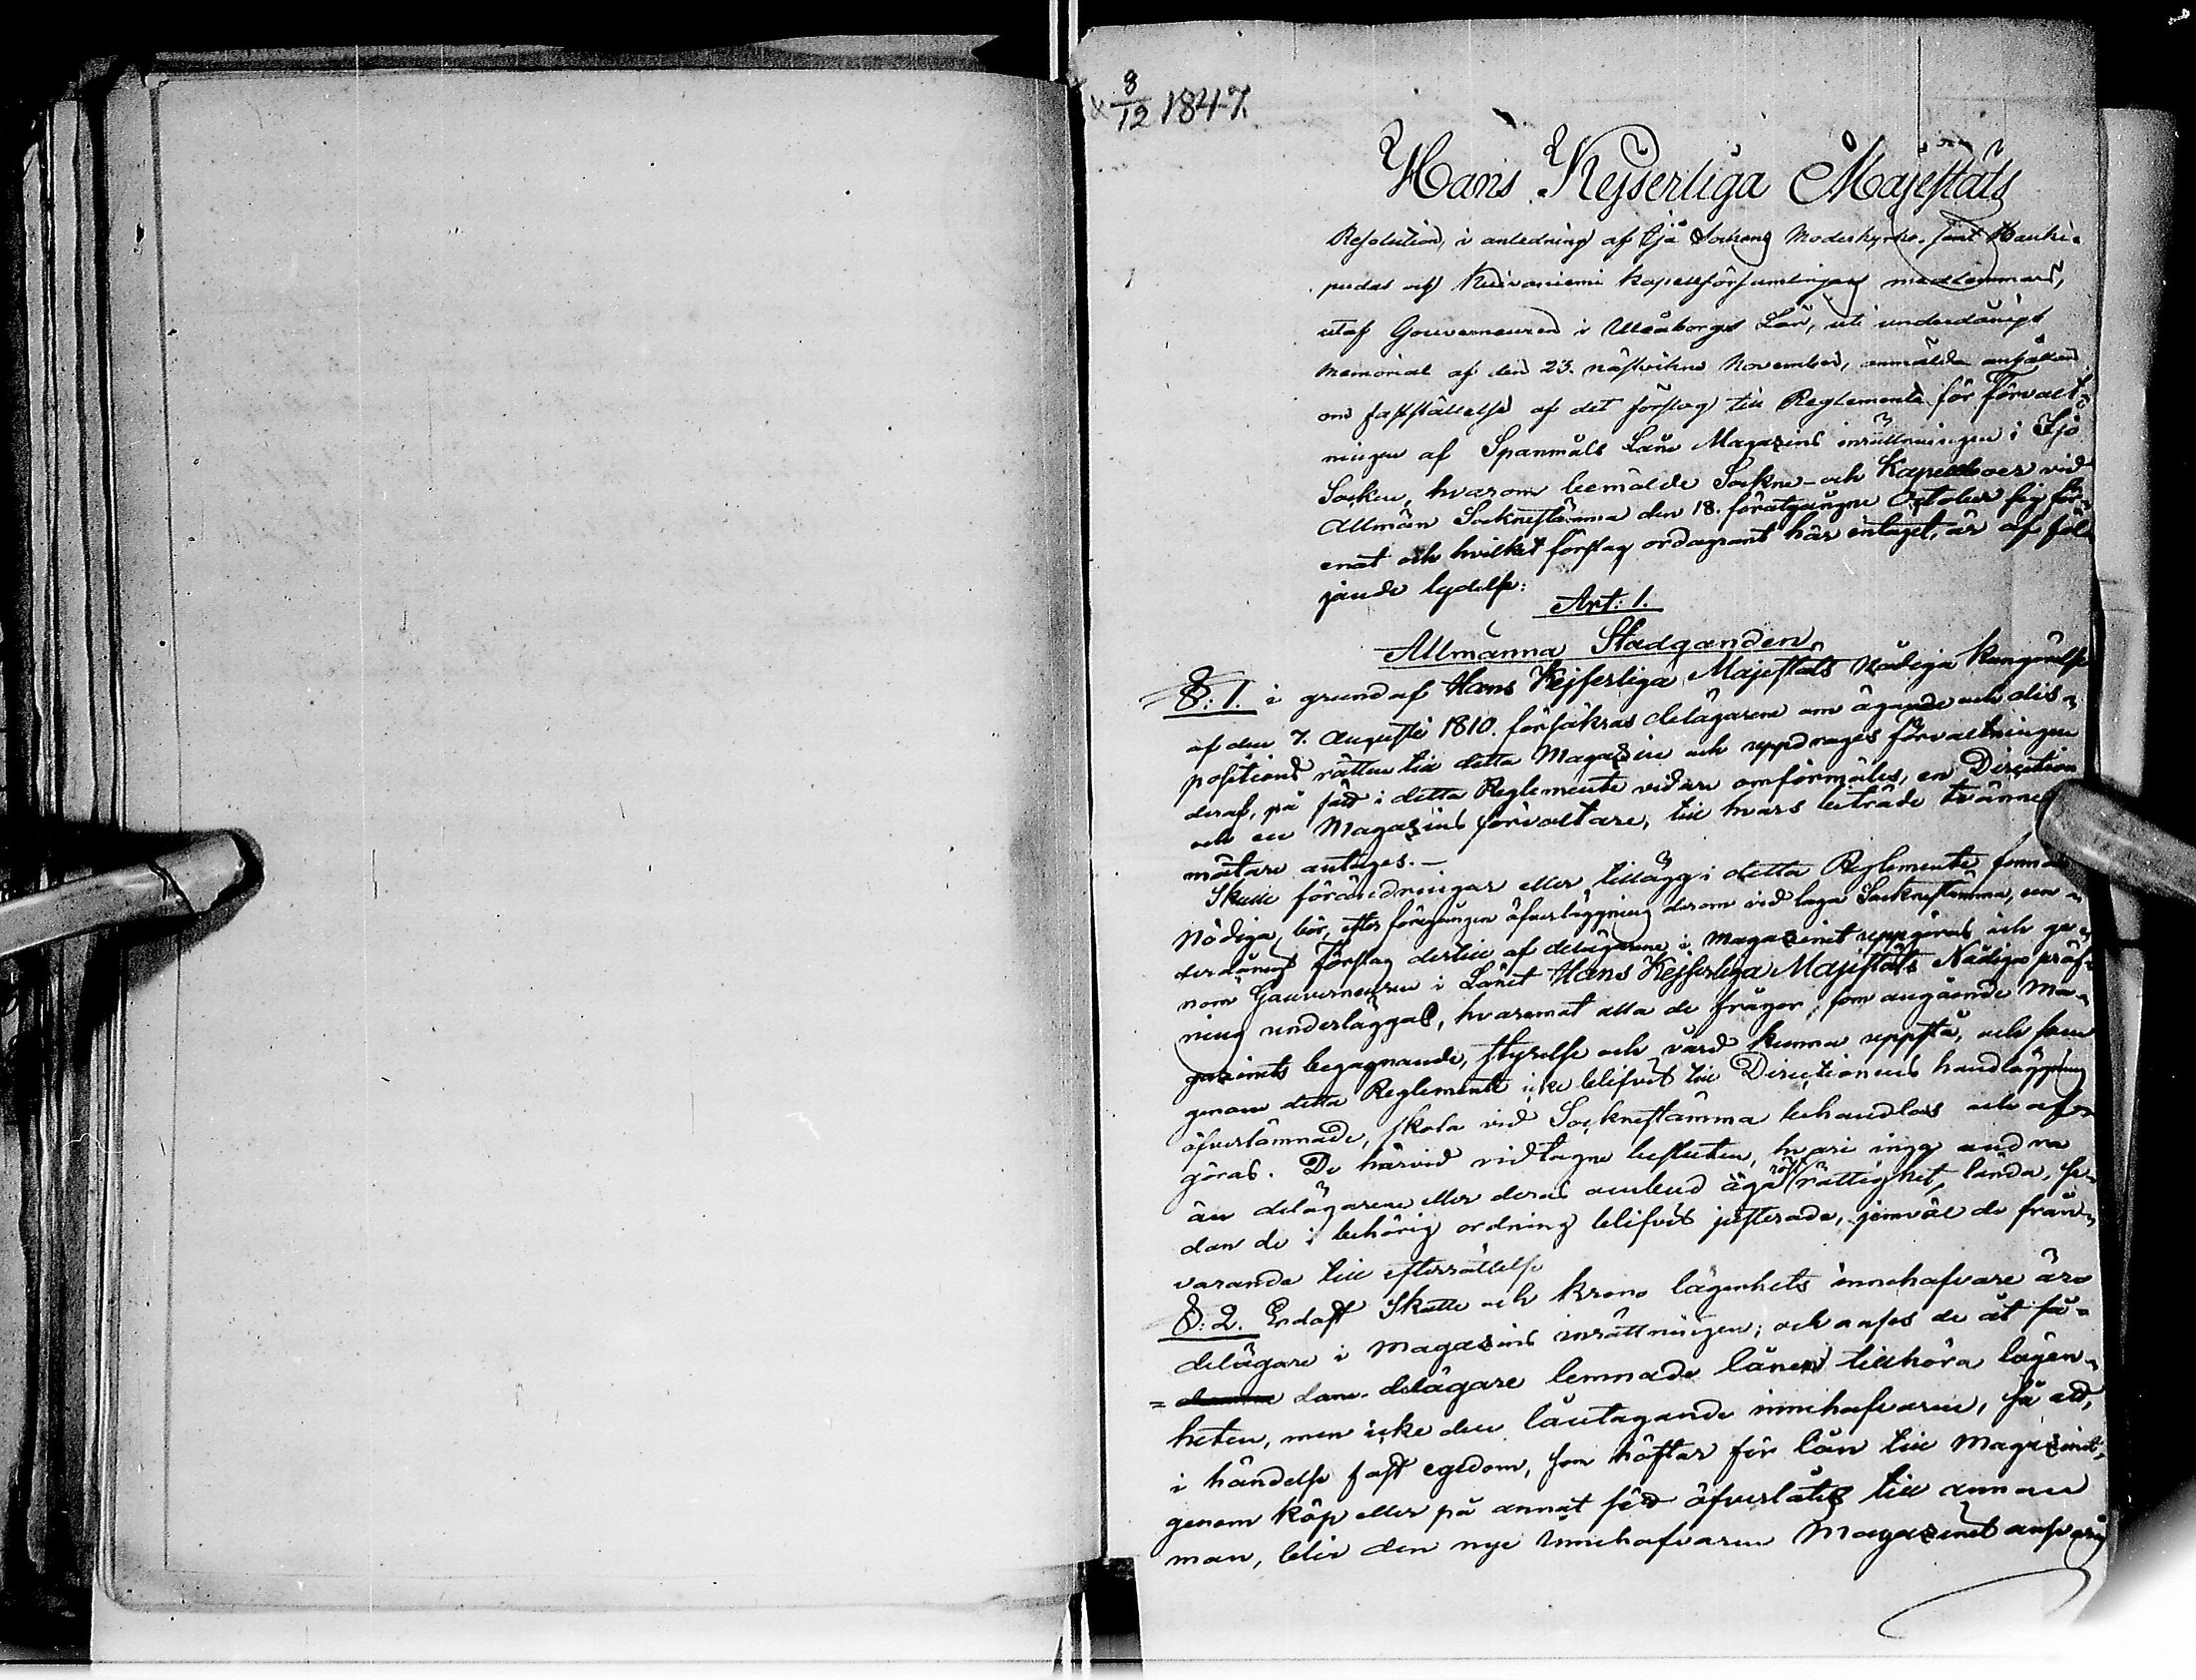 8/12 1847.
Hans Kejserliga Majestäts
Resolution, i anledning af Ijå Sockens Moderkyrko- samt Hauki-
pudas och Kuivaniemi Kapellförsamlingars medlemmars,
utaf Gouverneuren i Uleåborgs Län, uti underdånigt
Memorial af den 23. nästvikne November, anmälde anhållan
om fastställelse af det förslag till Reglemente för förvalt-
ningen af Spanmåls Låne Magazins inrättningen i Ijo
Socken, hvarom bemälde Sockne- och Kapellboer vid
Allmän Sockneståmma den 18. förutgångne October sig för-
enat och hvilket förslag ordagrant här intaget, är af föl-
jande lydelse:
Art: 1.
Allmänna Stadganden.
§: 1. i grund af Hans Kejserliga Majestäts Nådiga Kungörelse
af den 7. Augusti 1810. försäkras delägarene om ägande och dis-
positions rätten till detta Magazin och uppdrages förvaltningen
deraf, på sätt i detta Reglemente vidare omförmäles, en Direction
och en Magazins förvaltare, till hvars biträde tvänne
mätare antages. —
Skulle förändringar eller tillägg i detta Reglemente finnas
Nödiga, bör, efter föregången öfverläggning derom vid laga Sockneståmma, un-
derdånigt förslag dertill af delägarene i Magazinet uppgöras och ge-
nom Gouverneuren i Länet Hans Kejserliga Majestäts Nådiga pröf-
ning underläggas, hvaremot alla de frågor, som angående Ma-
gazinets begagnande, styrelse och vård kunna uppstå, och som
genom detta Reglemente icke blifvit till Directionens handläggning
öfverlämnade, skola vid Sockneståmma behandlas och af-
göras. De härvid vidtagne besluten, hvari inga andra
än delägarene eller deras ombud äga röst rättighet, lända, se-
dan de i behörig ordning blifvit justerade, jemväl de från-
varande till efterrättelse
§: 2. Endast Skatte och Krono lägenhets innehafvare äro
delägare i Magazins inrättningen; och anses de åt så-
= dane delägare lemnade lånen tillhöra lägen-
heten, men icke den låntagande innehafvaren, så att,
i händelse fast egedom, som häftar för lån till Magazinet,
genom köp eller på annat sätt öfverlåtes till annan
man, blir den nye innehafvaren Magazinet ansvarig